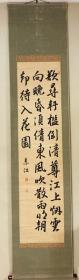 欲尋軒檻倒清尊江上烟雲
向晚昏須倩東風吹散雨明朝
却待入花園